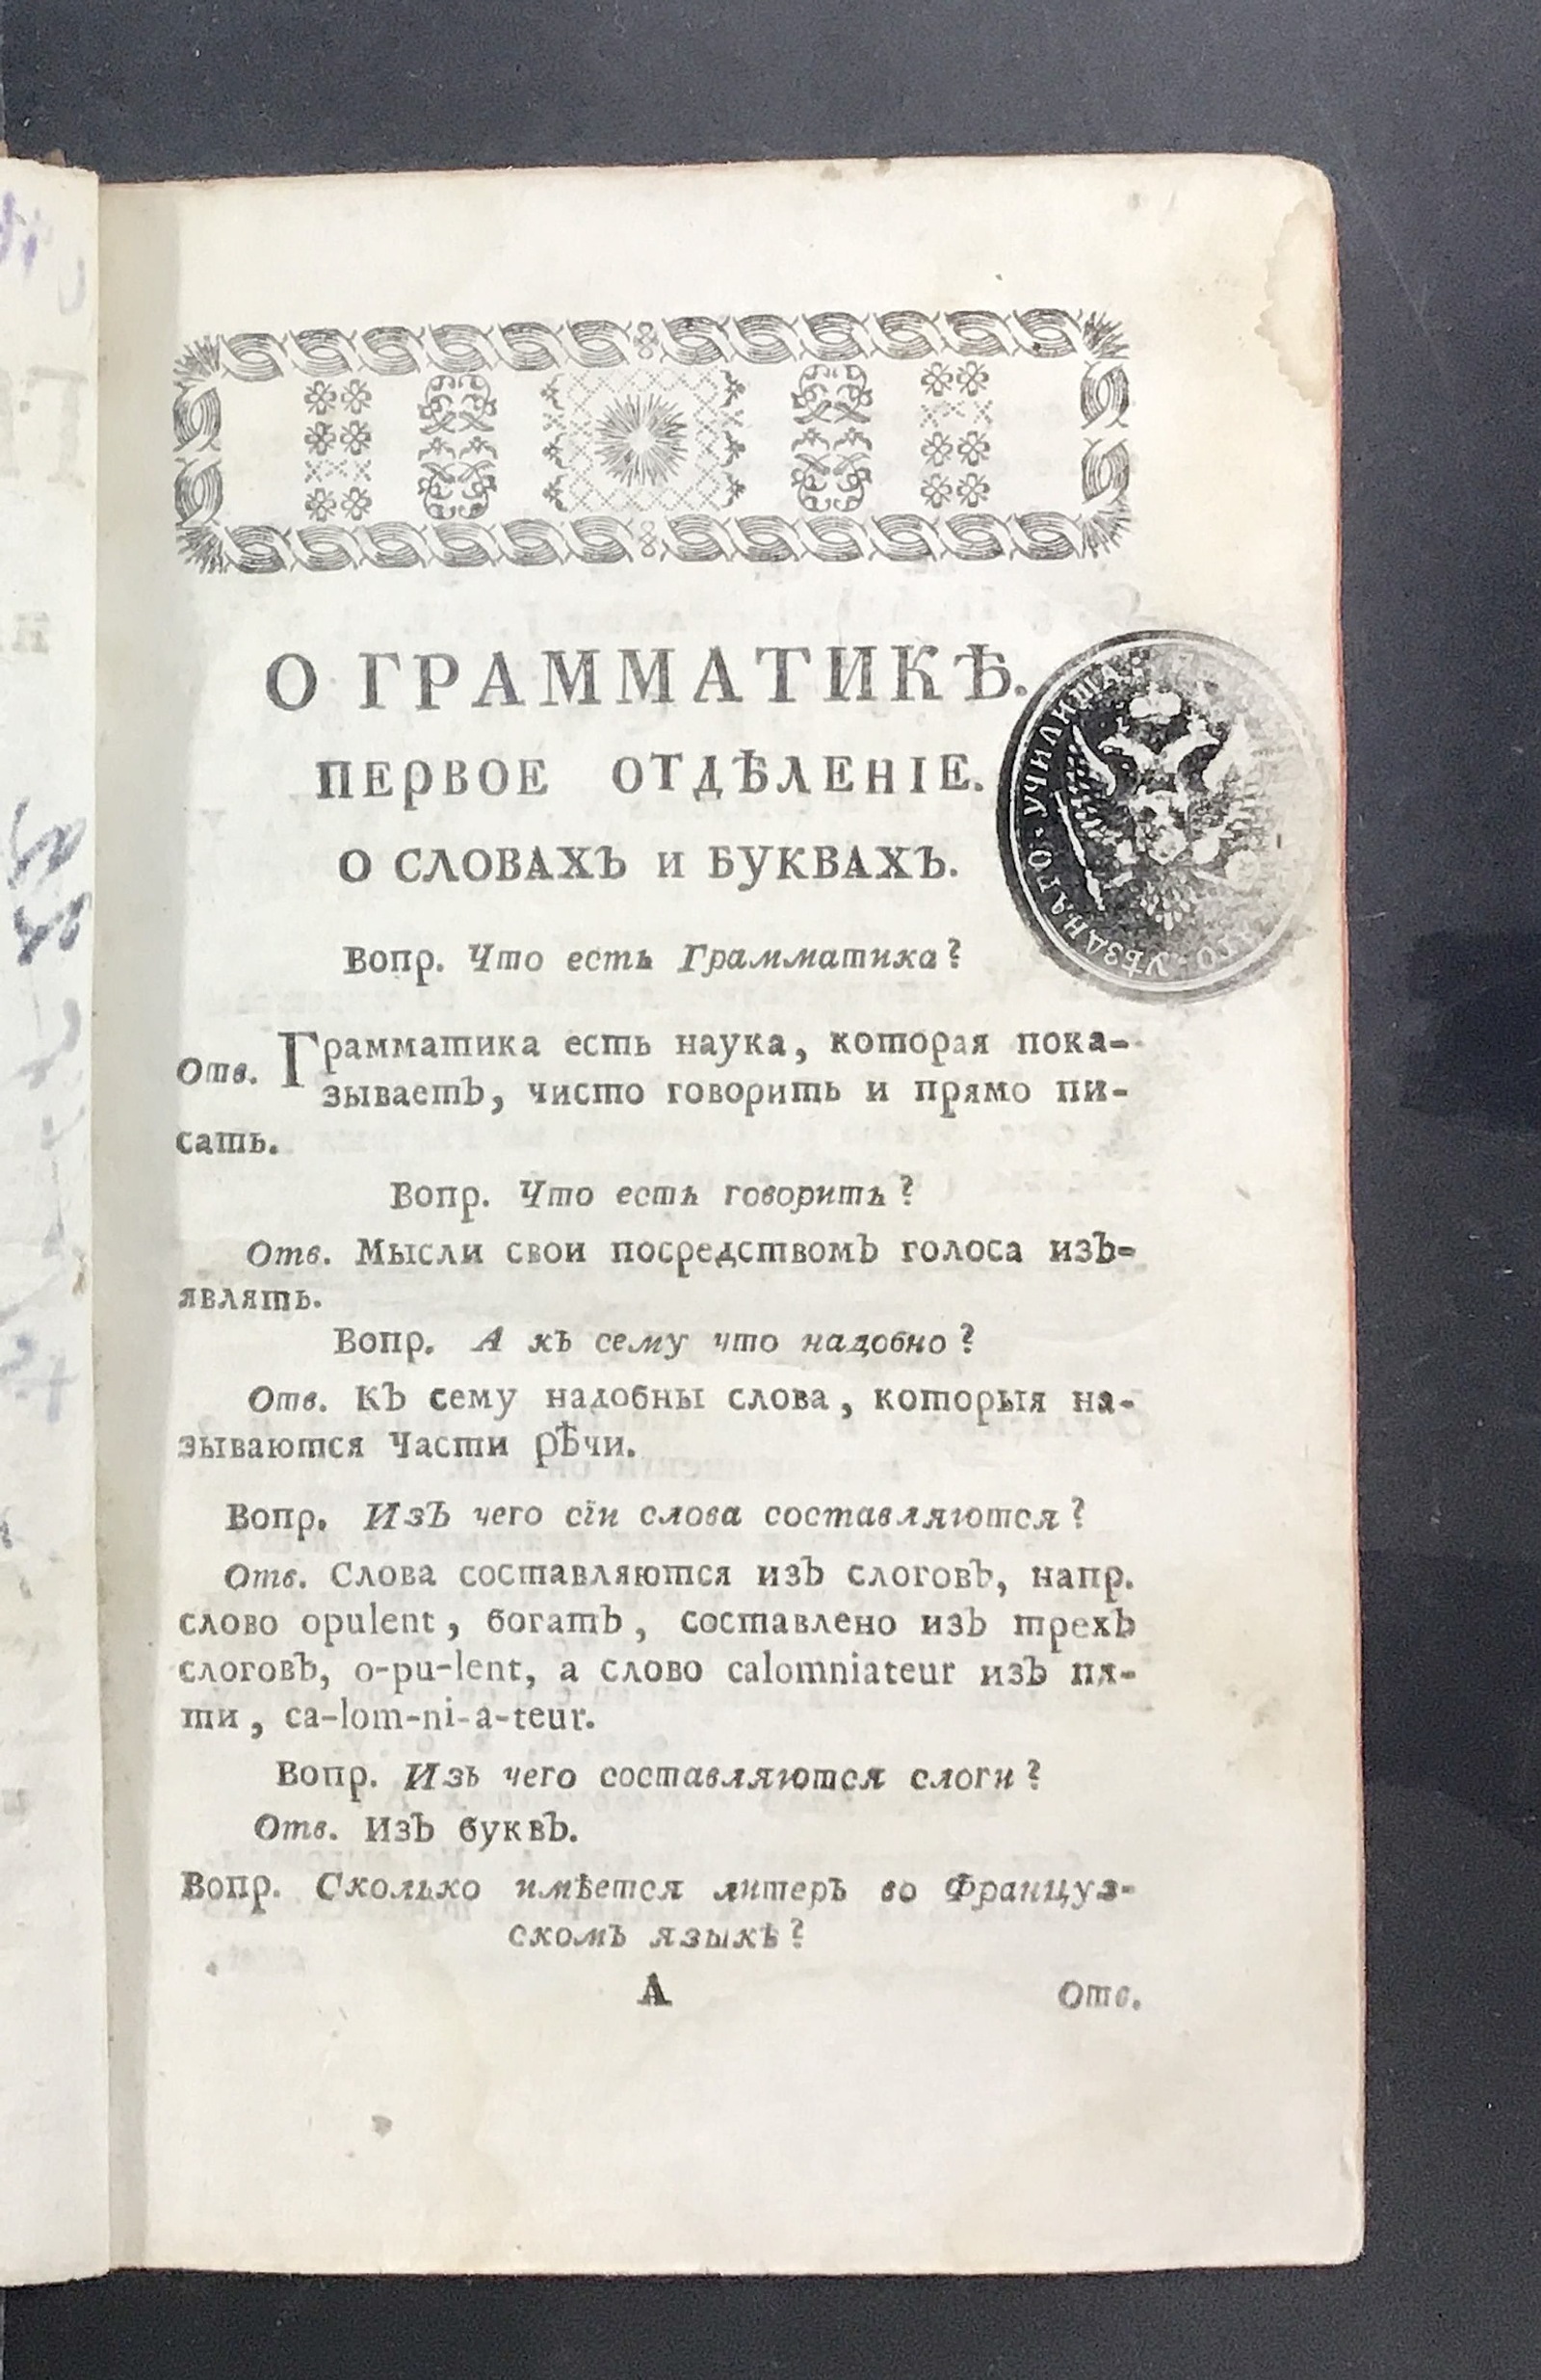 О ГРАММАТИКѢ.
ПЕРВОЕ ОТДѢЛЕНІЕ.
О СЛОВАХЪ и БУКВАХЪ.
УѢЗДНАГО · УЧИЛИЩА
Вопр. Что есть Грамматика?
Отв. Грамматика есть наука, которая пока-
зываетъ, чисто говорить и прямо пи-
сать.
Вопр. Что есть говорить?
Отв. Мысли свои посредствомъ голоса изъ-
являть.
Вопр. А къ сему что надобно?
Отв. Къ сему надобны слова, которыя на-
зываются Части рѣчи.
Вопр. Изъ чего сїи слова составляются?
Отв. Слова составляются изъ слоговъ, напр.
слово opulent, богатъ, составлено изъ трехъ
слоговъ, o-pu-lent, а слово calomniateur изъ пя-
ти, ca-lom-ni-a-teur.
Вопр. Изъ чего составляются слоги?
Отв. Изъ буквъ.
Вопр. Сколько имѣется литеръ во Француз-
скомъ языкѣ?
А Отв.